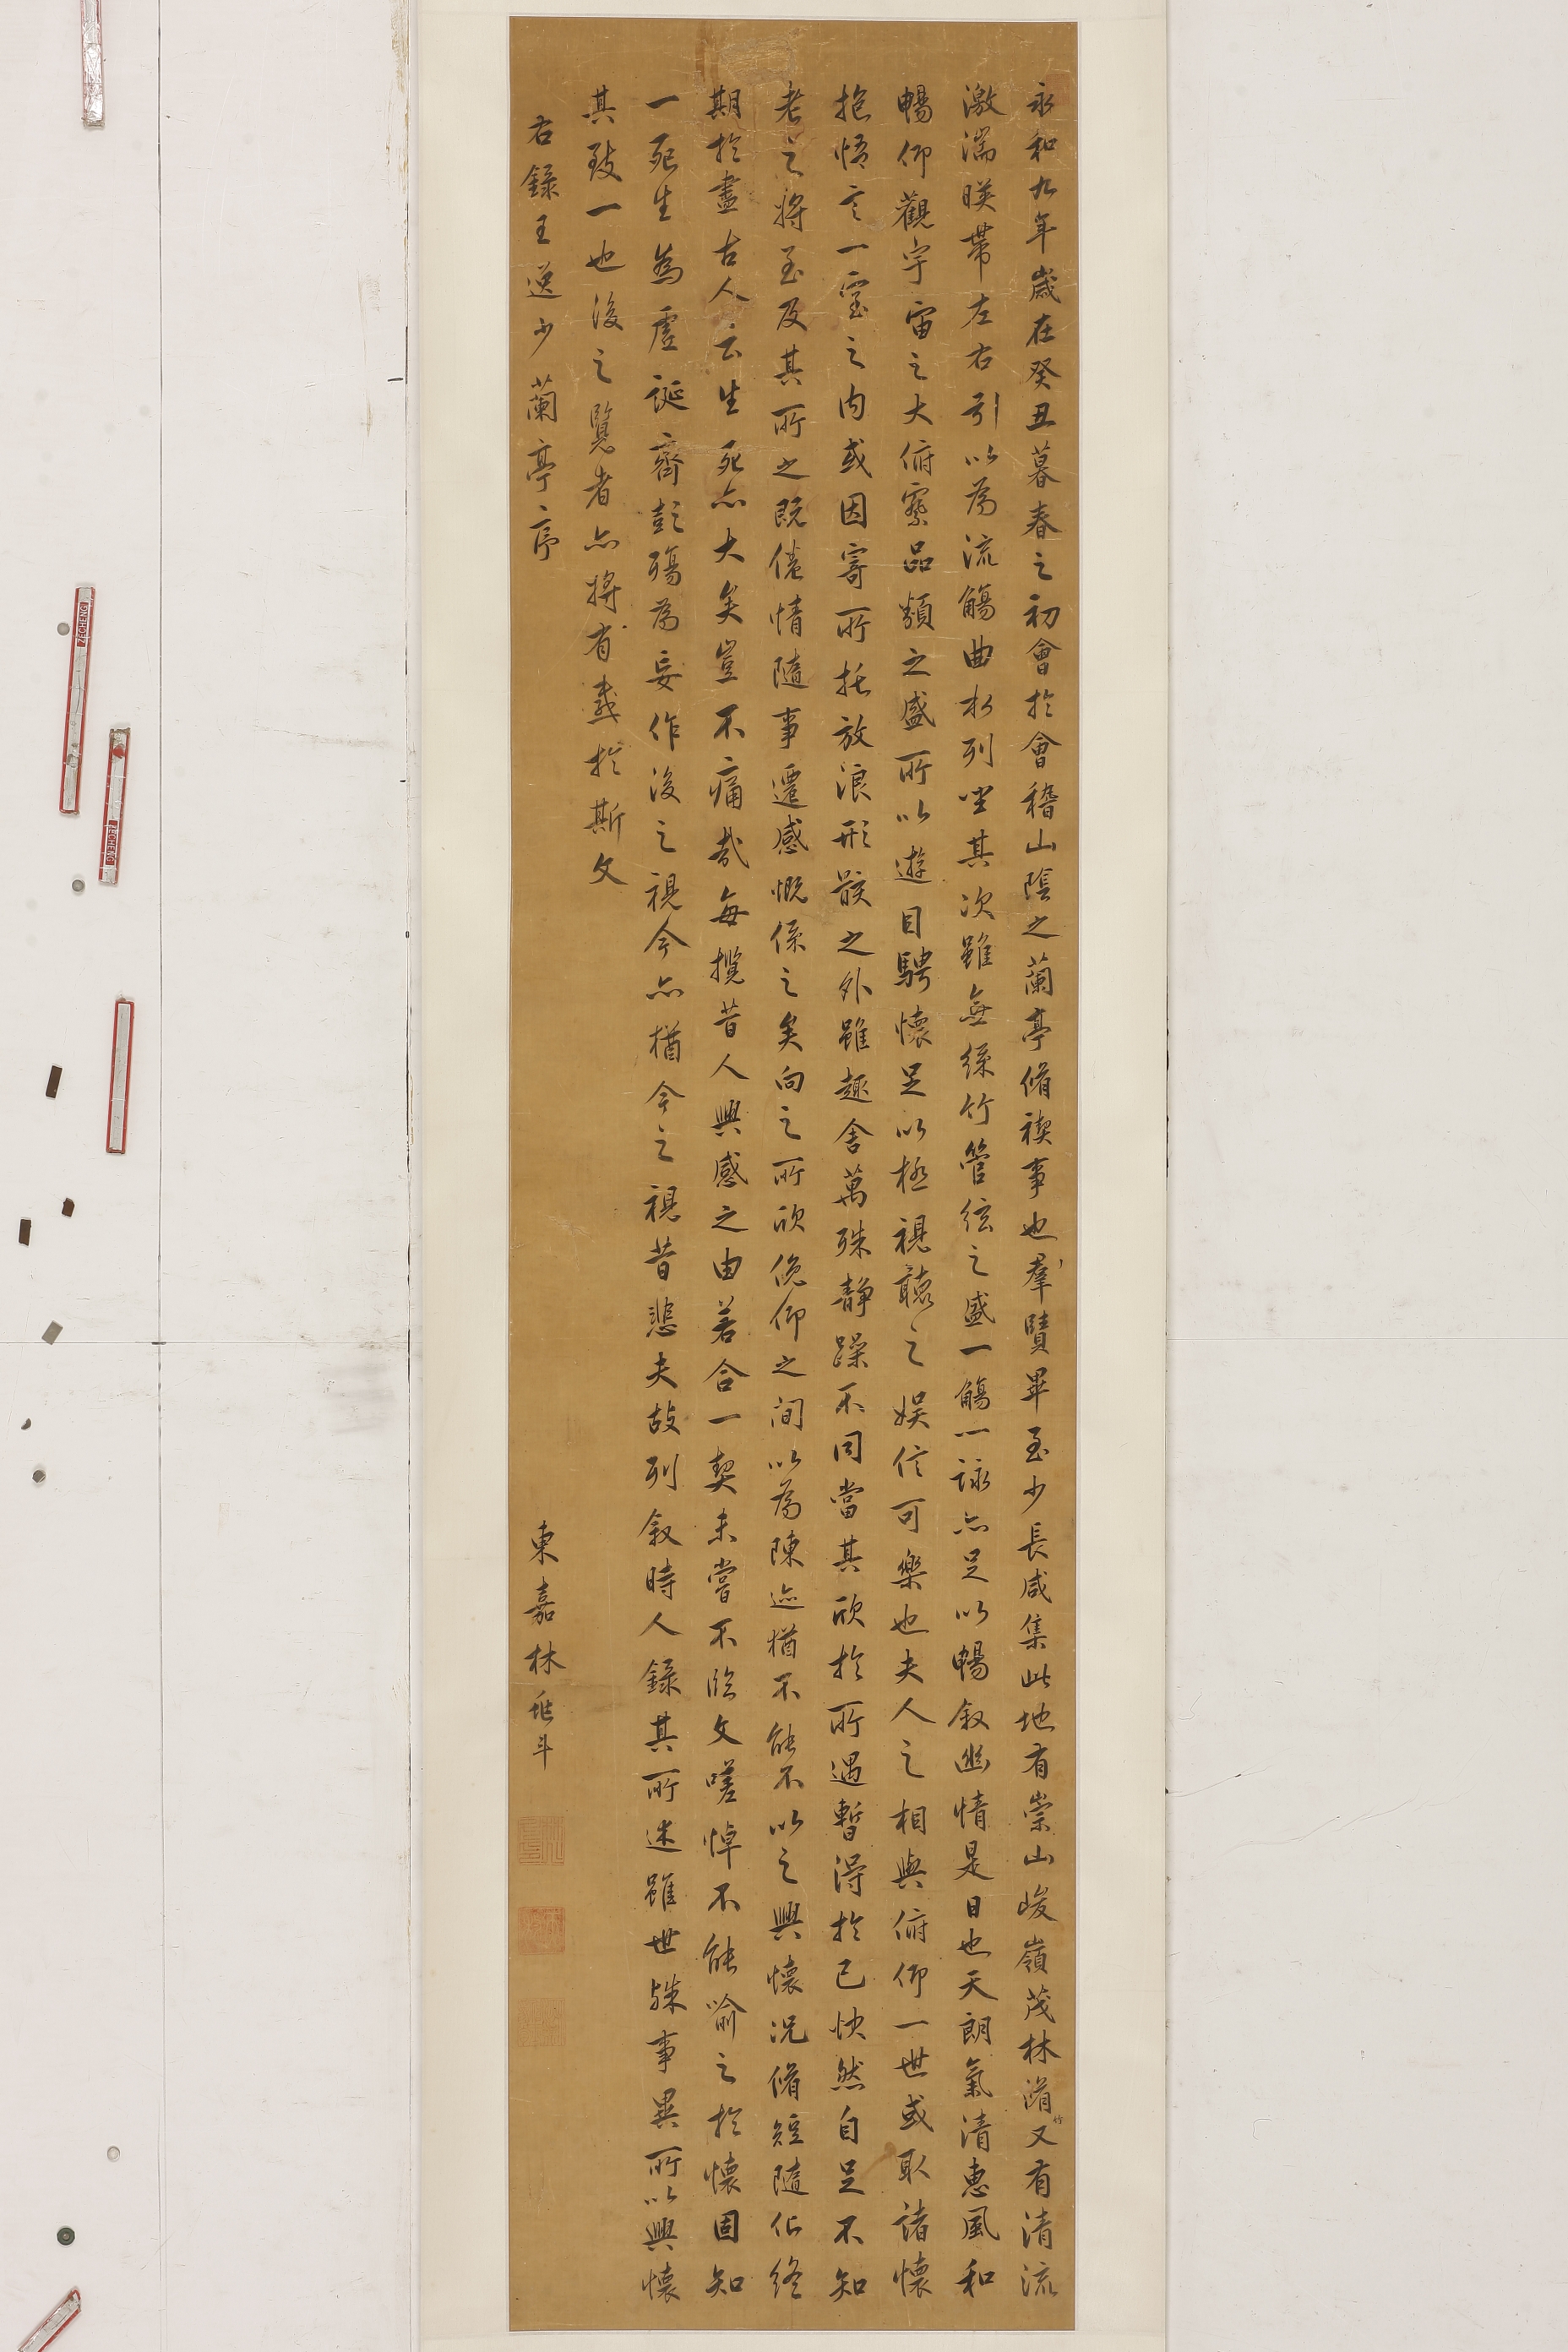 永和九年歲在癸丑暮春之初會於會稽山陰之蘭亭脩禊事也羣賢畢至少長咸集此地有崇山峻嶺茂林脩竹又有清流
激湍暎帶左右引以為流觴曲水列坐其次雖無絲竹管絃之盛一觴一詠亦足以暢敘幽情是日也天朗氣清惠風和
暢仰觀宇宙之大俯察品類之盛所以遊目騁懷足以極視聽之娛信可樂也夫人之相與俯仰一世或取諸懷
抱悟言一室之內或因寄所托放浪形骸之外雖趣舍萬殊靜躁不同當其欣於所遇暫得於己快然自足不知
老之將至及其所之既倦情隨事遷感慨係之矣向之所欣俛仰之間以為陳迹猶不能不以之興懷況脩短隨化終
期於盡古人云生死亦大矣豈不痛哉每攬昔人興感之由若合一契未嘗不臨文嗟悼不能喻之於懷固知
一死生為虛誕齊彭殤為妄作後之視今亦猶今之視昔悲夫故列敘時人錄其所述雖世殊事異所以興懷
其致一也後之覽者亦將有感於斯文
右錄王逸少蘭亭序
東嘉林斗
ZECHENG
ZECHENG